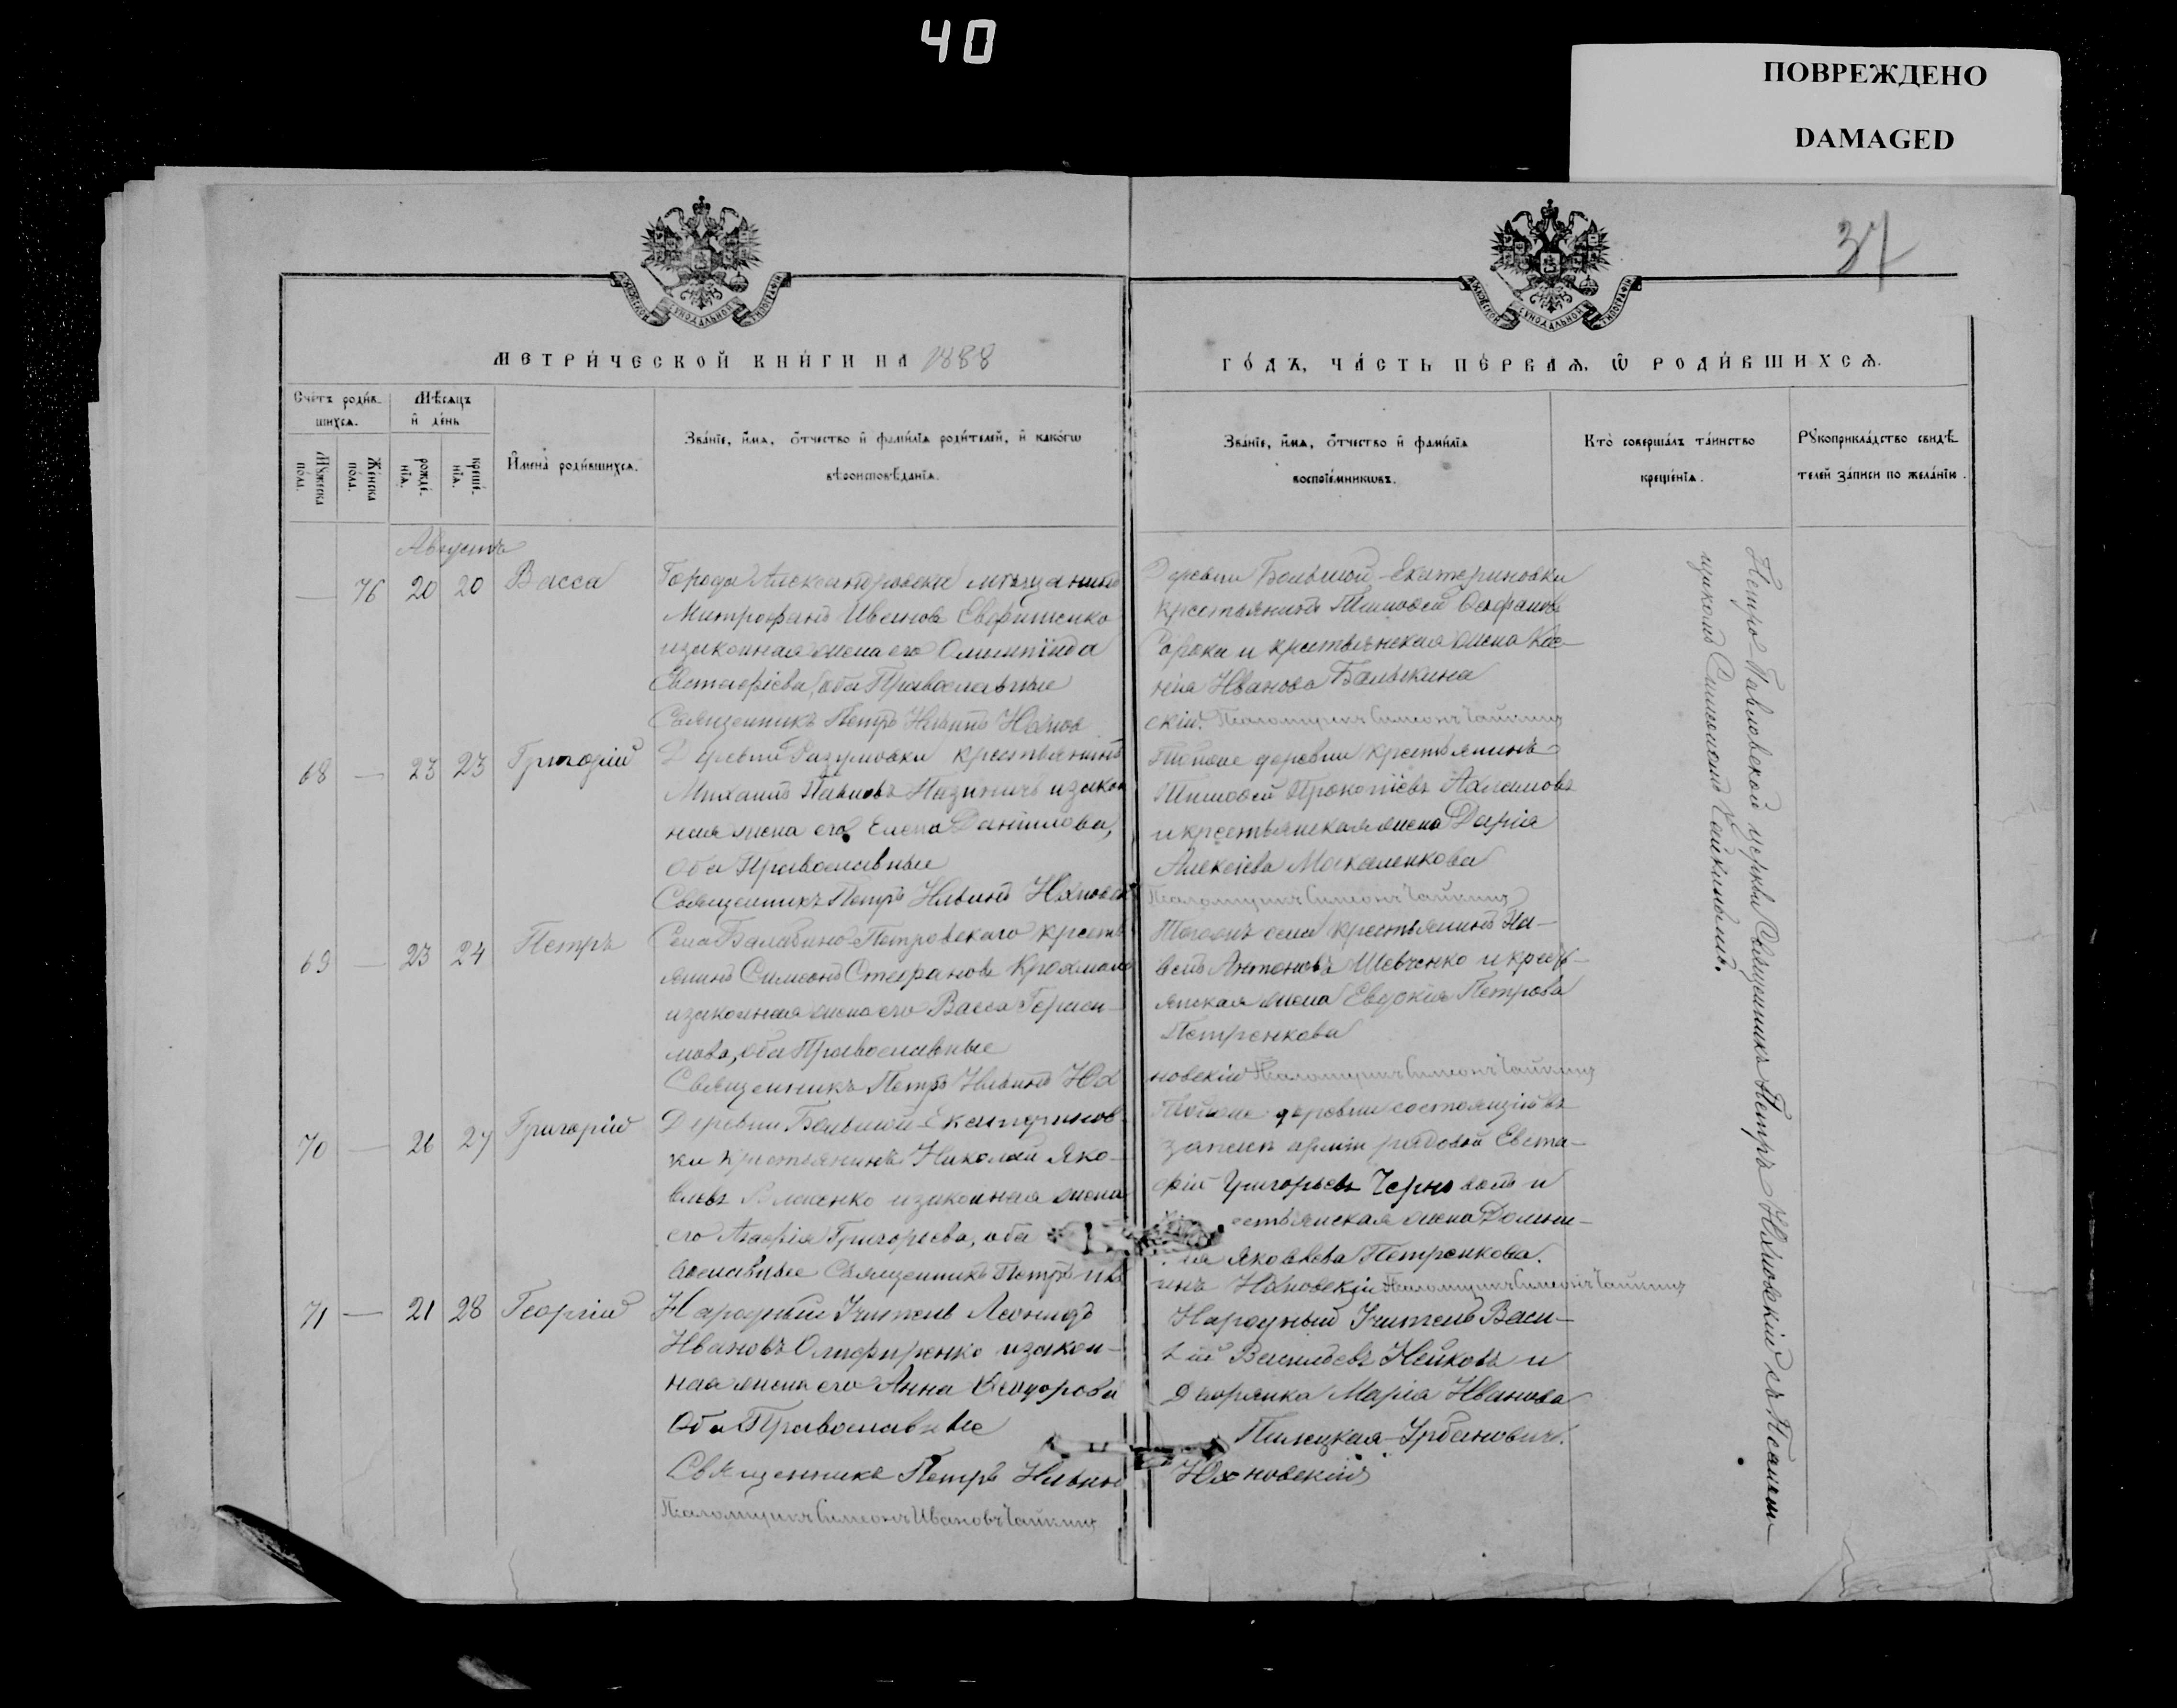 40
ПОВРЕЖДЕНО
DAMAGED
37
МЕТРИ́ЧЕСКОЙ КНИ́ГИ НА 1888
ГО́ДЪ, ЧА́СТЬ ПЕ́РВАѦ, Ѿ РОДИ́ВШИХСѦ.
Сче́тъ роди́в-
шихсѧ.
Мѣсѧцъ
и҆ де́нь
Мꙋжеска
по́ла.
Же́нска
по́ла.
рожде́-
нїѧ.
креще́-
нїѧ.
И҆мена̀ роди́вшихсѧ.
Зва́нїе, и҆́мѧ, ѻ҆́тчество и҆ фами́лїѧ роди́телей, и҆ како́гѡ
вѣроисповѣ́данїѧ.
Зва́нїе, и҆́мѧ, ѻ҆́тчество и҆ фами́лїѧ
воспрїе́мникѡвъ.
Кто̀ соверша́лъ та́инство
креще́нїѧ.
Рꙋкоприкла́дство свидѣ́-
телей за́писи по жела́нїю.
Августъ
— 76 20 20 Васса
Города Александровска мѣщанинъ
Митрофанъ Ивановъ Евфименко
и законная жена его Олимпіада
Евстафіева, оба Православные
Священникъ Петръ Ильинъ Юхнов
Деревни Большой-Екатериновки
крестьянинъ Тимофей
Сорока и крестьянская жена Ксе-
нія Иванова Балыкина
скій. Псаломщикъ Симеонъ Чайкинъ
68 — 23 23 Григорій
Деревни Разумовки крестьянинъ
Михаилъ Павловъ и закон
ная жена его Елена Даниілова,
оба Православные
Священникъ Петръ Ильинъ Юхновск
Той же деревни крестьянинъ
Тимофей Прокопіевъ
и крестьянская жена Дарія
Алексіева Москаленкова
Псаломщикъ Симеонъ Чайкинъ
69 — 23 24 Петръ
Села Балабино-Петровскаго кресть
янинъ Симеонъ Стефановъ Крохмаль
и законная жена его Васса Гераси-
мова, оба Православные
Священникъ Петръ Ильинъ Юх
Тогожъ села крестьянинъ Па-
велъ Антоновъ Шевченко и кресть-
янская жена Евдокія Петрова
Петренкова
новскій Псаломщикъ Симеонъ Чайкинъ
70 — 26 27 Григорій
Деревни Большой-Екатеринов-
ки крестьянинъ Николай Яко-
влевъ Власенко и законная жена
его Агафія Григорьева, оба
вославные Священникъ Петръ Иль
Той же деревни состоящій въ
запасѣ арміи рядовой Евста-
фій Григорьевъ Черно и
естьянская жена Домни-
Яковлева Петренкова.
инъ Юхновскій Псаломщикъ Симеонъ Чайкинъ
71 — 21 28 Георгій
Народный Учитель Леонидъ
Ивановъ Олифиренко и закон-
ная жена его Анна Феодорова
Оба Православные
Священникъ Петръ Ильинъ
Псаломщикъ Симеонъ Ивановъ Чайкинъ
Народный Учитель Васи-
лій Васильевъ Нейковъ и
Дворянка Марія Иванова
Пилецкая-Урбановичъ.
Юхновскій
Петро-Павловской церкви Священникъ Петръ Юхновскій съ Псаломъ-
щикомъ Симеономъ Чайкинымъ.